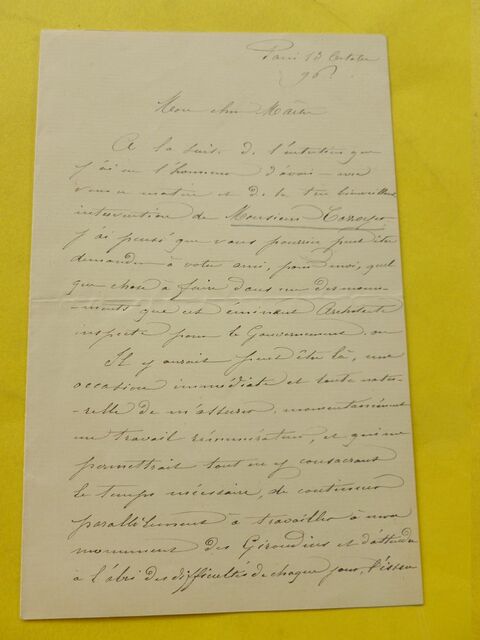 Paris 13 Octobre
96.
Mon cher Maître
A la suite de l'entretien que
j'ai eu l'honneur d'avoir avec
vous ce matin et de la très bienveillante
intervention de Monsieur
j'ai pensé que vous pourriez peut être
demander à votre ami, pour moi, quel
que chose à faire dans un des monu-
-ments que cet éminent Architecte
inspecte pour le Gouvernement. ou
Il y aurait peut être là, une
occasion immédiate et toute natu-
-relle de m'assurer momentanément
un travail rémunérateur, et qui me
permettrait tout en y consacrant
le temps nécessaire, de continuer
parallèlement à travailler à mon
monument des Girondins et d'attendre
à l'abri des difficultés de chaque jour, l'issue